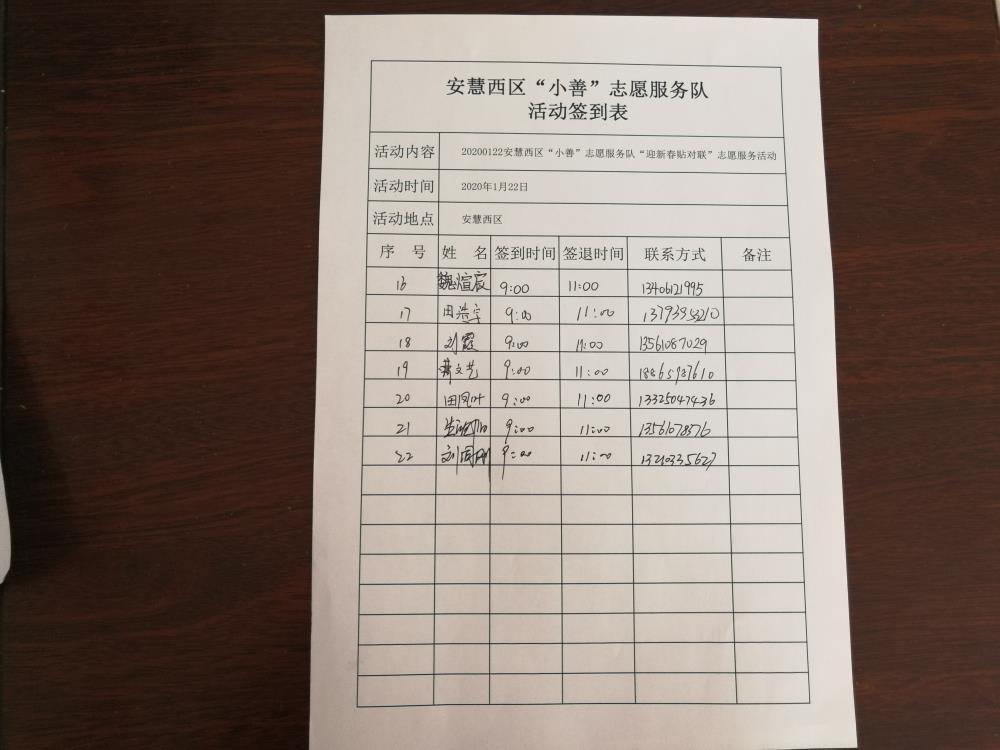 安慧西区“小善”志愿服务队
活动签到表
活动内容 20200122安慧西区“小善”志愿服务队“迎新春贴对联”志愿服务活动
活动时间 2020年1月22日
活动地点 安慧西区
序 号 姓 名 签到时间 签退时间 联系方式 备注
16 魏煊宸 9:00 11:00 13406121995
17 田浩宇 9:00 11:00
18 刘霞 9:00 11:00 13561087029
19 文艺 9:00 11:00
20 田凤叶 9:00 11:00 13325047436
21 9:00 11:00 13561078376
22 刘同刚 9:00 11:00 13210335627